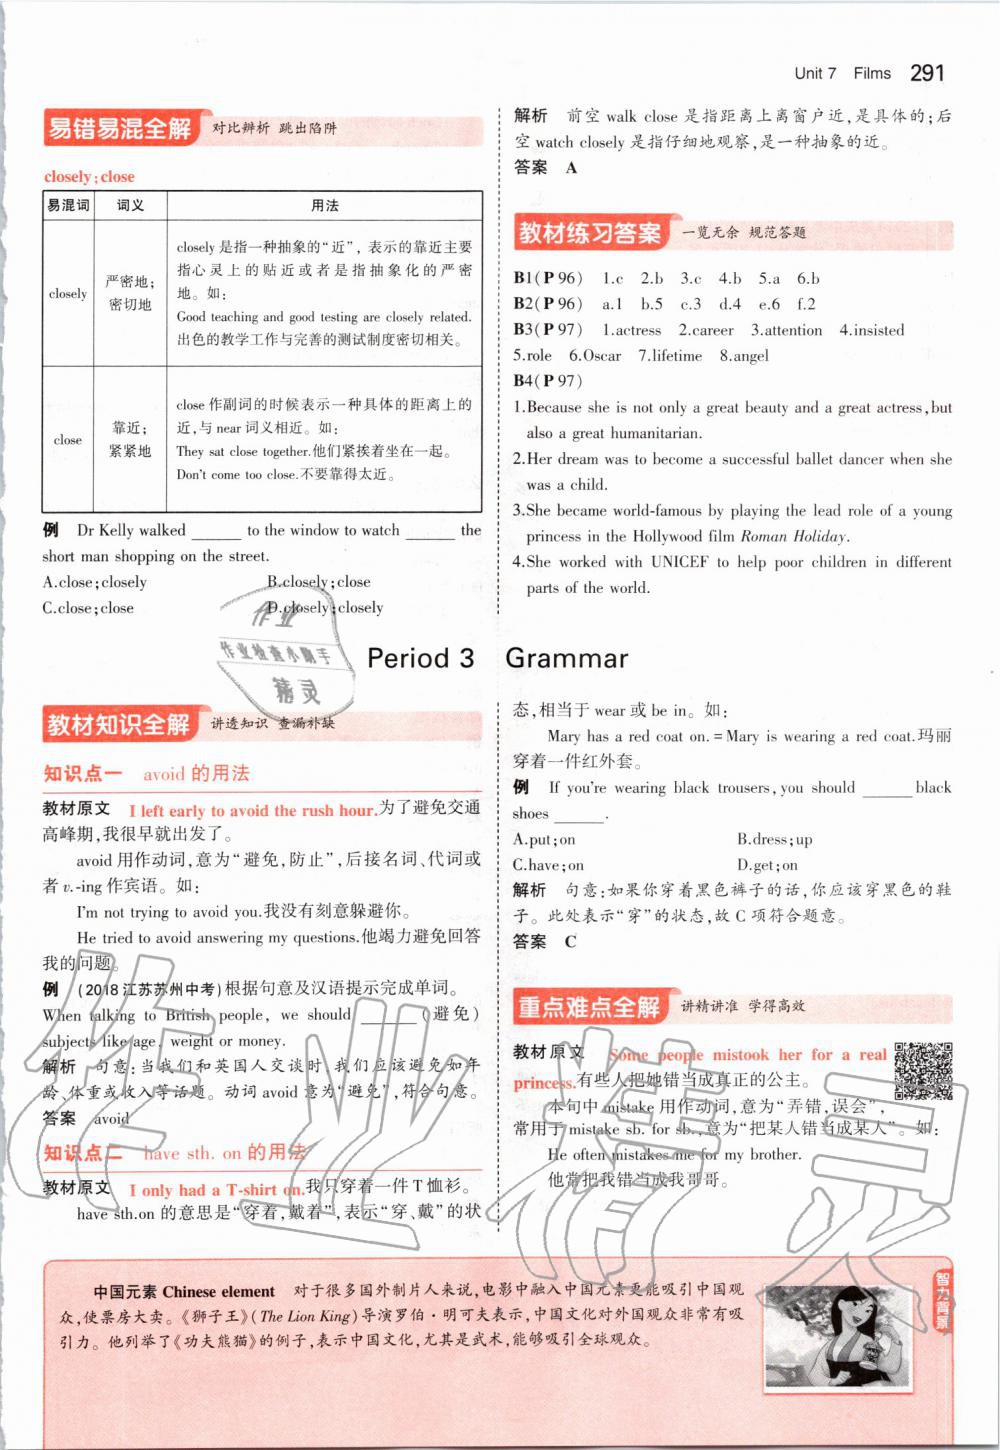 Unit 7 Films 291
易错易混全解 对比辨析 跳出陷阱
closely;close
易混词 词义 用法
closely
严密地;
密切地
closely 是指一种抽象的“近”，表示的靠近主要
指心灵上的贴近或者是指抽象化的严密
地。如:
Good teaching and good testing are closely related.
出色的教学工作与完善的测试制度密切相关。
close
靠近;
紧紧地
close 作副词的时候表示一种具体的距离上的
近,与 near 词义相近。如:
They sat close together.他们紧挨着坐在一起。
Don't come too close.不要靠得太近。
例 Dr Kelly walked ______ to the window to watch ______ the
short man shopping on the street.
A.close;closely B.closely;close
C.close;close D.closely;closely
解析 前空 walk close 是指距离上离窗户近,是具体的;后
空 watch closely 是指仔细地观察,是一种抽象的近。
答案 A
教材练习答案 一览无余 规范答题
B1(P 96) 1.c 2.b 3.c 4.b 5.a 6.b
B2(P 96) a.1 b.5 c.3 d.4 e.6 f.2
B3(P 97) 1.actress 2.career 3.attention 4.insisted
5.role 6.Oscar 7.lifetime 8.angel
B4(P 97)
1.Because she is not only a great beauty and a great actress,but
also a great humanitarian.
2.Her dream was to become a successful ballet dancer when she
was a child.
3.She became world-famous by playing the lead role of a young
princess in the Hollywood film Roman Holiday.
4.She worked with UNICEF to help poor children in different
parts of the world.
作业
作业检查小助手
精灵
Period 3 Grammar
教材知识全解 讲透知识 查漏补缺
知识点一 avoid 的用法
教材原文 I left early to avoid the rush hour.为了避免交通
高峰期,我很早就出发了。
avoid 用作动词,意为“避免,防止”,后接名词、代词或
者 v.-ing 作宾语。如:
I'm not trying to avoid you.我没有刻意躲避你。
He tried to avoid answering my questions.他竭力避免回答
我的问题。
例 (2018江苏苏州中考)根据句意及汉语提示完成单词。
When talking to British people, we should ______ (避免)
subjects like age, weight or money.
解析 句意:当我们和英国人交谈时,我们应该避免如年
龄、体重或收入等话题。动词 avoid 意为“避免”,符合句意。
答案 avoid
知识点二 have sth. on 的用法
教材原文 I only had a T-shirt on.我只穿着一件T恤衫。
have sth.on 的意思是“穿着,戴着”,表示“穿、戴”的状
态,相当于 wear 或 be in。如:
Mary has a red coat on.=Mary is wearing a red coat.玛丽
穿着一件红外套。
例 If you're wearing black trousers,you should ______ black
shoes ______ .
A.put;on B.dress;up
C.have;on D.get;on
解析 句意:如果你穿着黑色裤子的话,你应该穿黑色的鞋
子。此处表示“穿”的状态,故 C 项符合题意。
答案 C
重点难点全解 讲精讲准 学得高效
教材原文 Some people mistook her for a real
princess.有些人把她错当成真正的公主。
本句中 mistake 用作动词,意为“弄错,误会”,
常用于 mistake sb. for sb.,意为“把某人错当成某人”。如:
He often mistakes me for my brother.
他常把我错当成我哥哥。
作业精灵
中国元素 Chinese element 对于很多国外制片人来说,电影中融入中国元素更能吸引中国观
众,使票房大卖。《狮子王》(The Lion King)导演罗伯·明可夫表示,中国文化对外国观众非常有吸
引力。他列举了《功夫熊猫》的例子,表示中国文化,尤其是武术,能够吸引全球观众。
智力背景